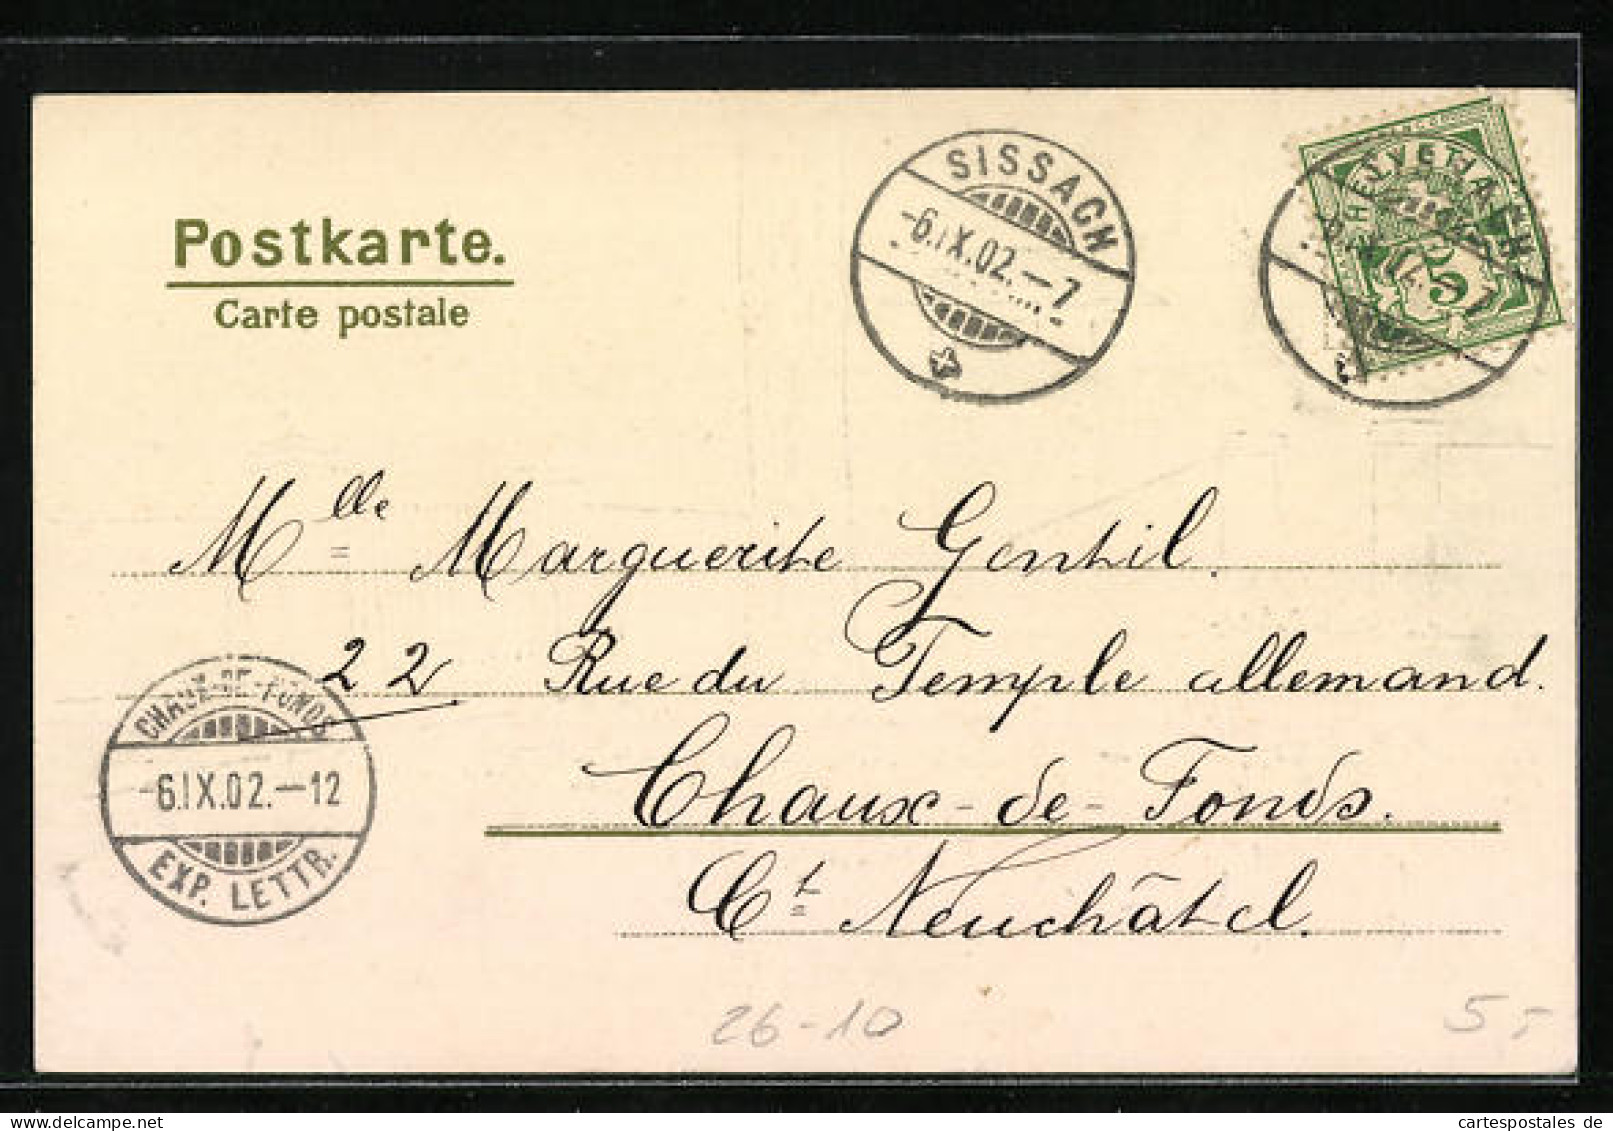 Postkarte.
Carte postale
SISSACH
-6.IX.02.-7
HELVETIA
5
Mlle Marguerite Gentil.
22 Rue du Temple allemand.
Chaux-de-Fonds.
Ct Neuchâtel.
CHAUX-DE-FONDS
-6.IX.02.-12
EXP. LETTR.
26-10
5,-
cartespostales.de